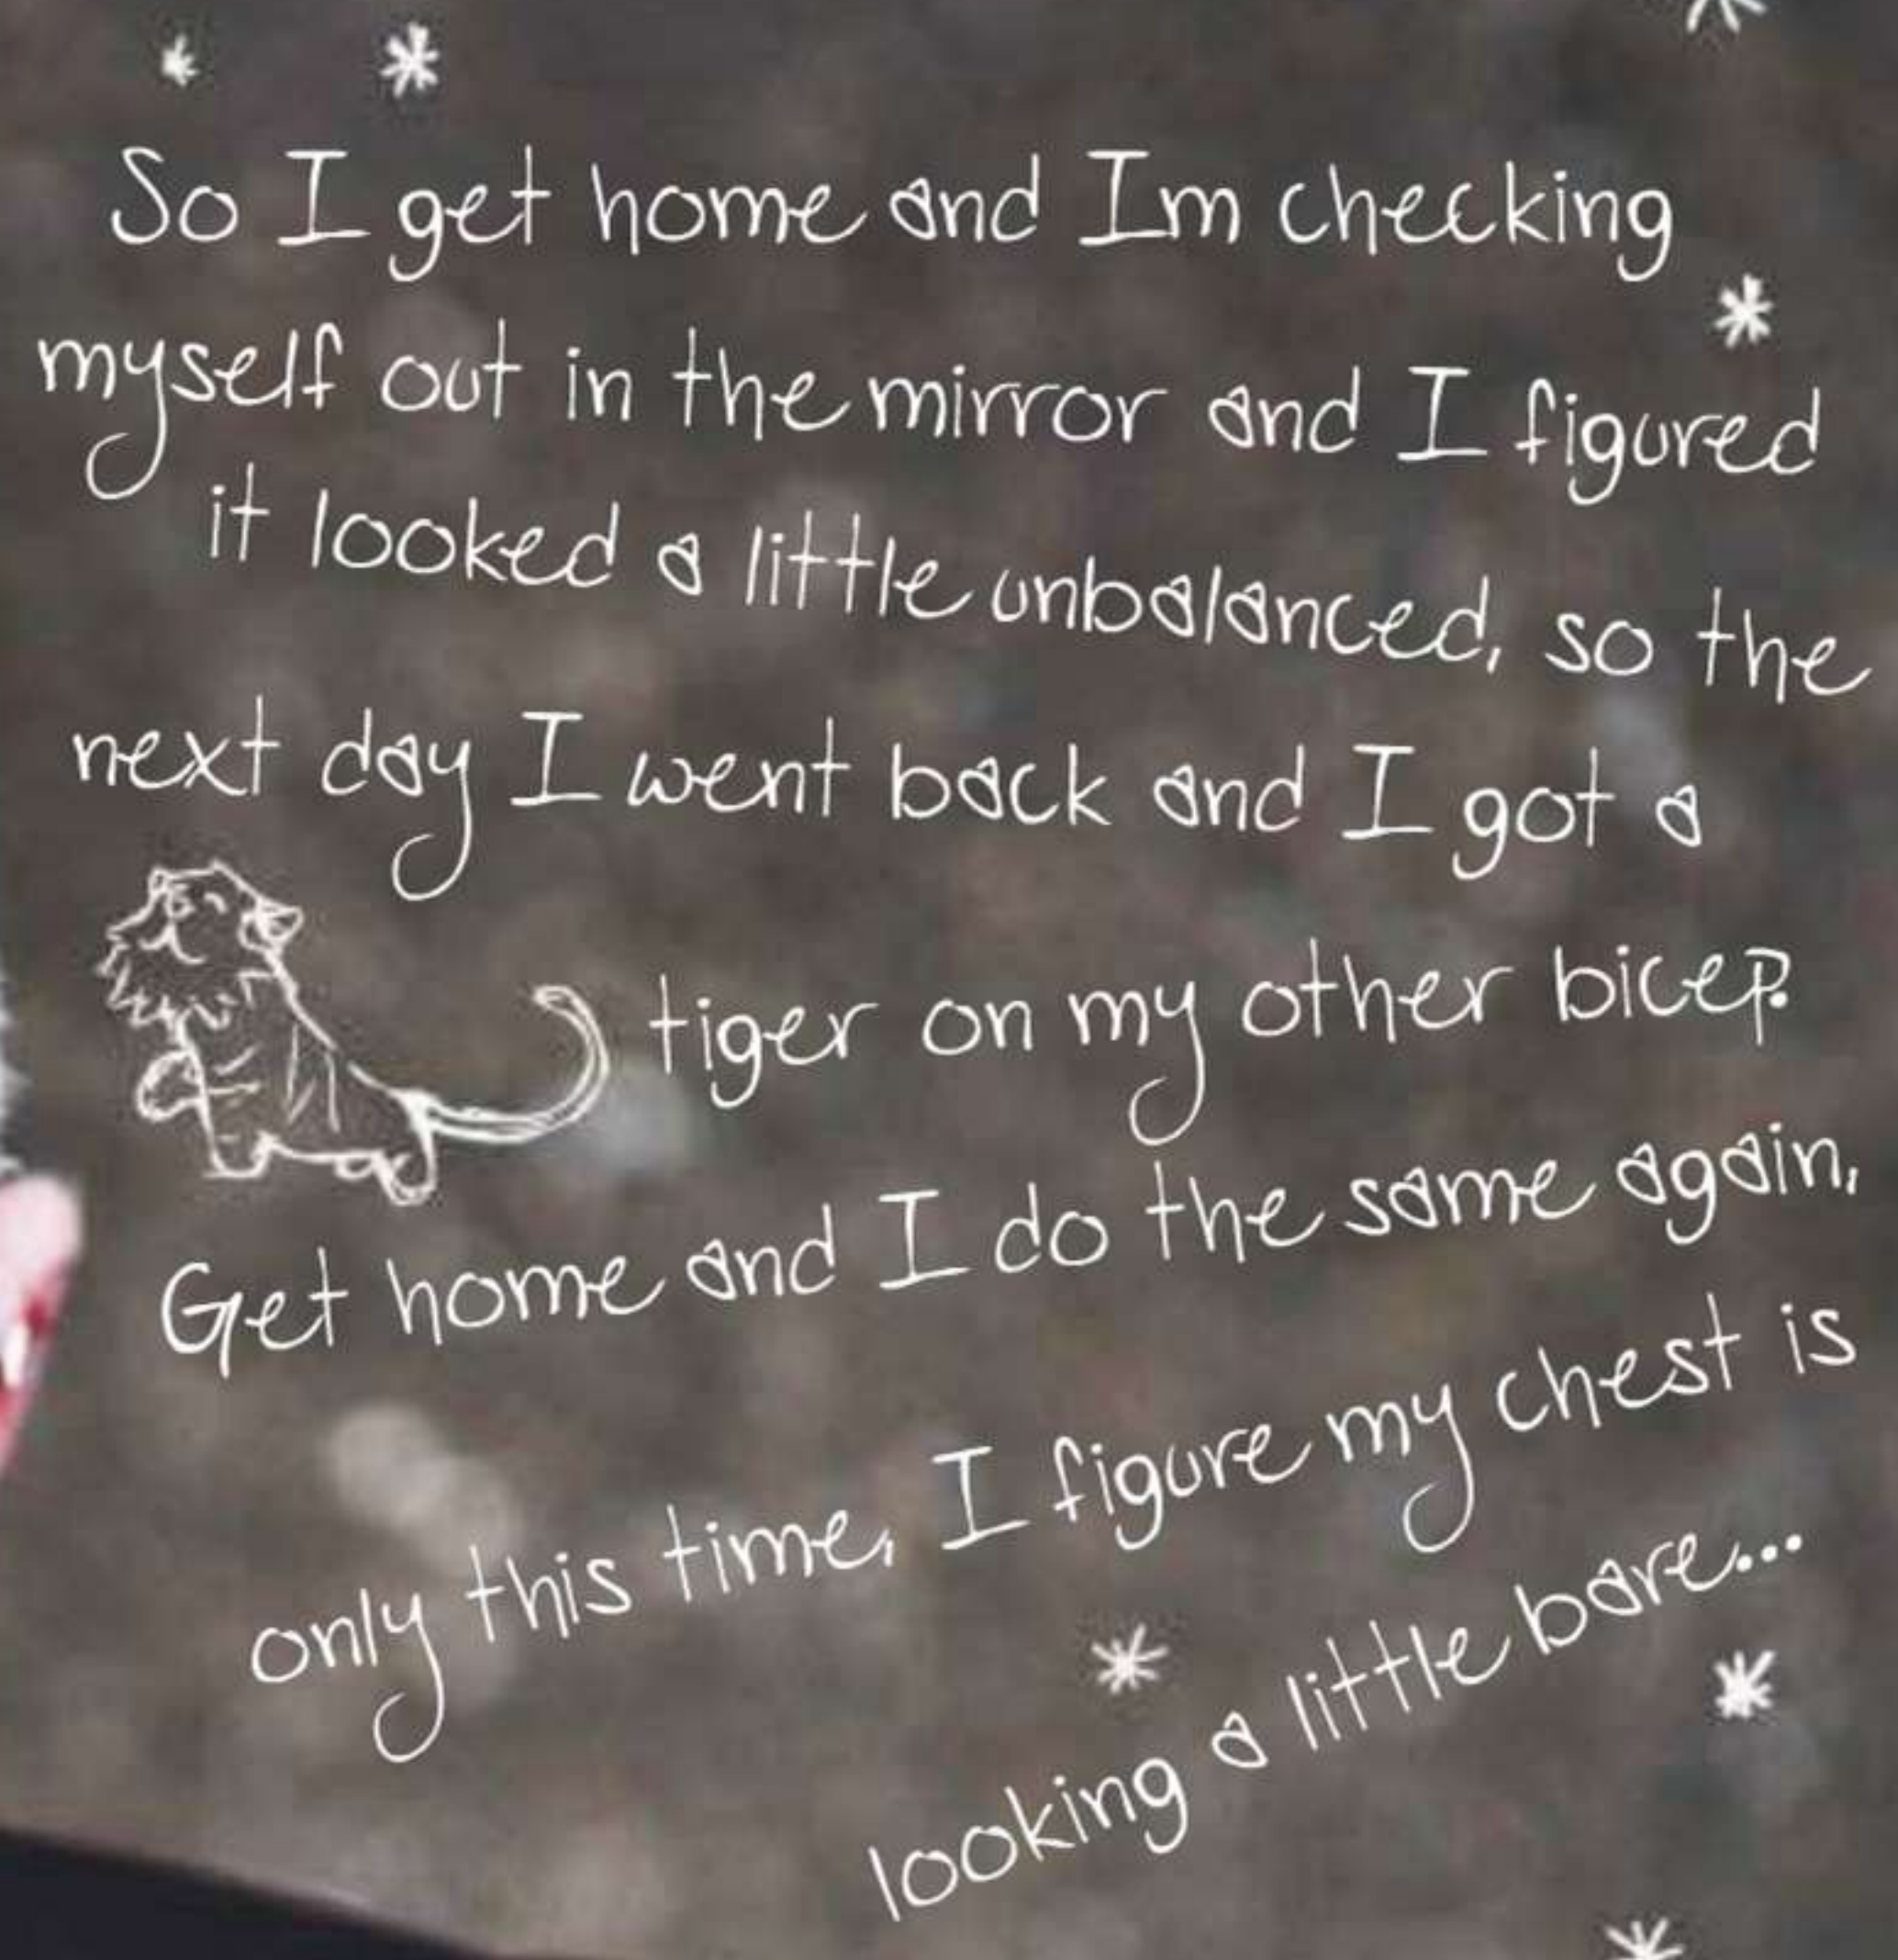 So I get home and Im checking
myself out in the mirror and I figured
it looked a little unbalanced, so the
next day I went back and I got a
tiger on my other bicep.
Get home and I do the same again,
only this time, I figure my chest is
looking a little bare...